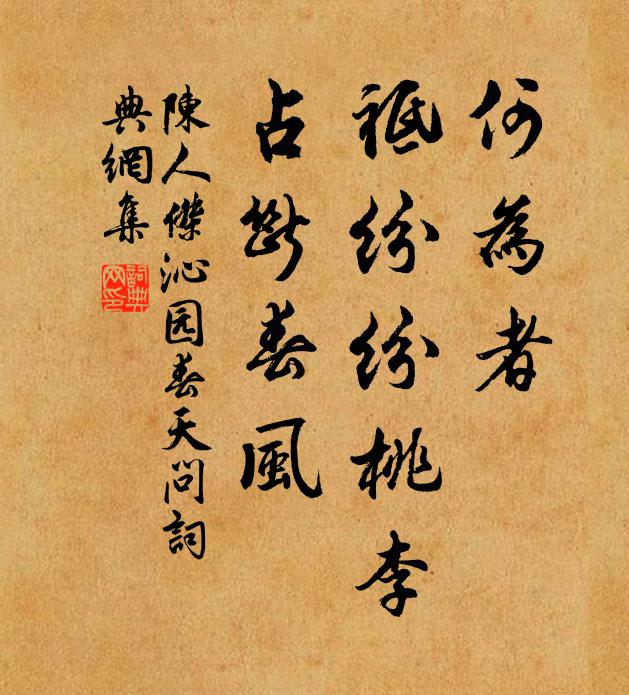 何為者
祗紛紛桃李
占斷春風
陳人傑沁园春天問詞
典網集
詞典
网印